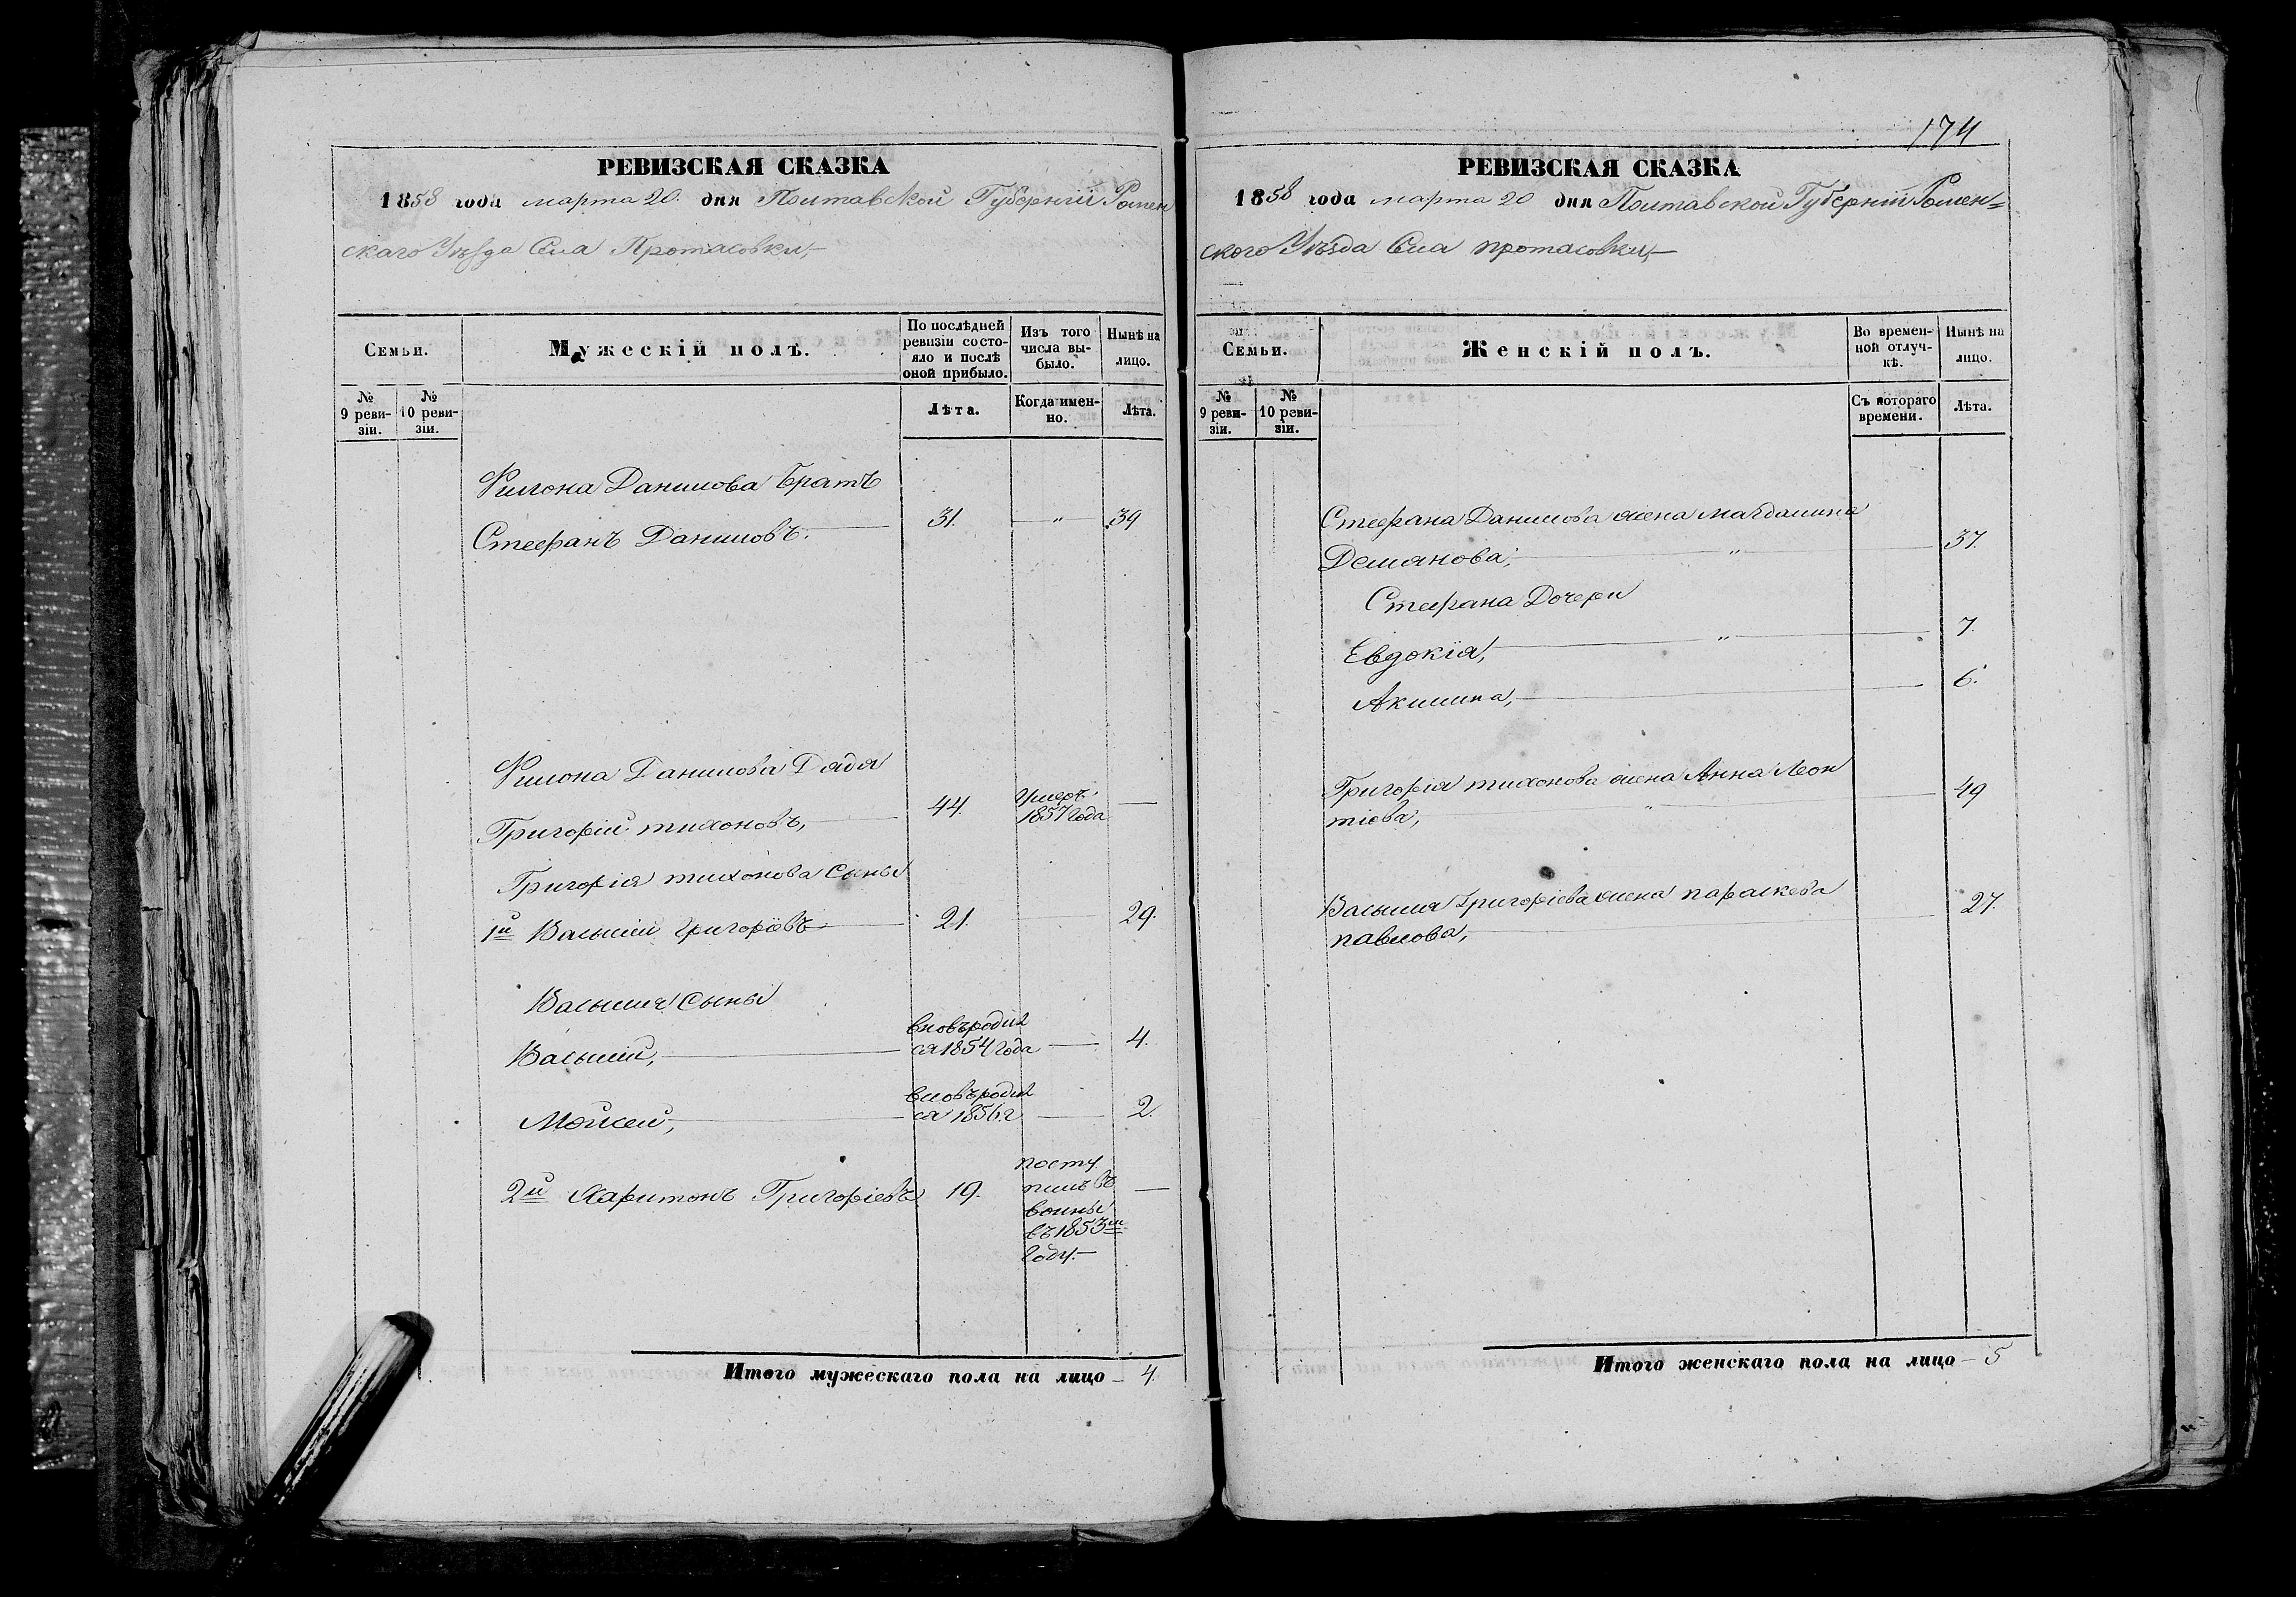 РЕВИЗСКАЯ СКАЗКА
1858 года марта 20. дня Полтавской Губернии Ромен
скаго Уѣзда Села Протасовки,
Семьи.
Мужескій полъ.
По послѣдней ревизіи состояло и послѣ оной прибыло.
Изъ того числа выбыло.
Нынѣ на лицо.
№ 9 ревизіи.
№ 10 ревизіи.
Лѣта.
Когда именно.
Лѣта.
Филона Данилова братъ
Стефанъ Даниловъ. 31. " 39
Филона Данилова Дядя
Григорій тихоновъ, 44. Умеръ 1857 года —
Григорія тихонова Сыны
1й Василій Григоріевъ 21. 29.
Василія Сыны
Василій, вновь родил ся 1854 года — 4.
Мойсей, вновь родил ся 1856 г — 2.
2й Харитонъ Григоріевъ 19. посту
пилъ въ —
воины
въ 1853м
году.—
Итого мужескаго пола на лицо — 4.
174
РЕВИЗСКАЯ СКАЗКА
1858 года марта 20 дня Полтавской Губерніи Ромен=
ского Уѣзда Села протасовки,
Семьи.
Женскій полъ.
Во временной отлучкѣ.
Нынѣ на лицо.
№ 9 ревизіи.
№ 10 ревизіи.
Съ котораго времени.
Лѣта.
Стефана Данилова жена магдалина
Демянова, " 37.
Стефана Дочери
Евдокія, " 7.
Акилина, 6.
Григорія тихонова жена Анна Леон
тіева, " 49
Василия Григоріева жена параскева
павлова, 27.
Итого женскаго пола на лицо — 5